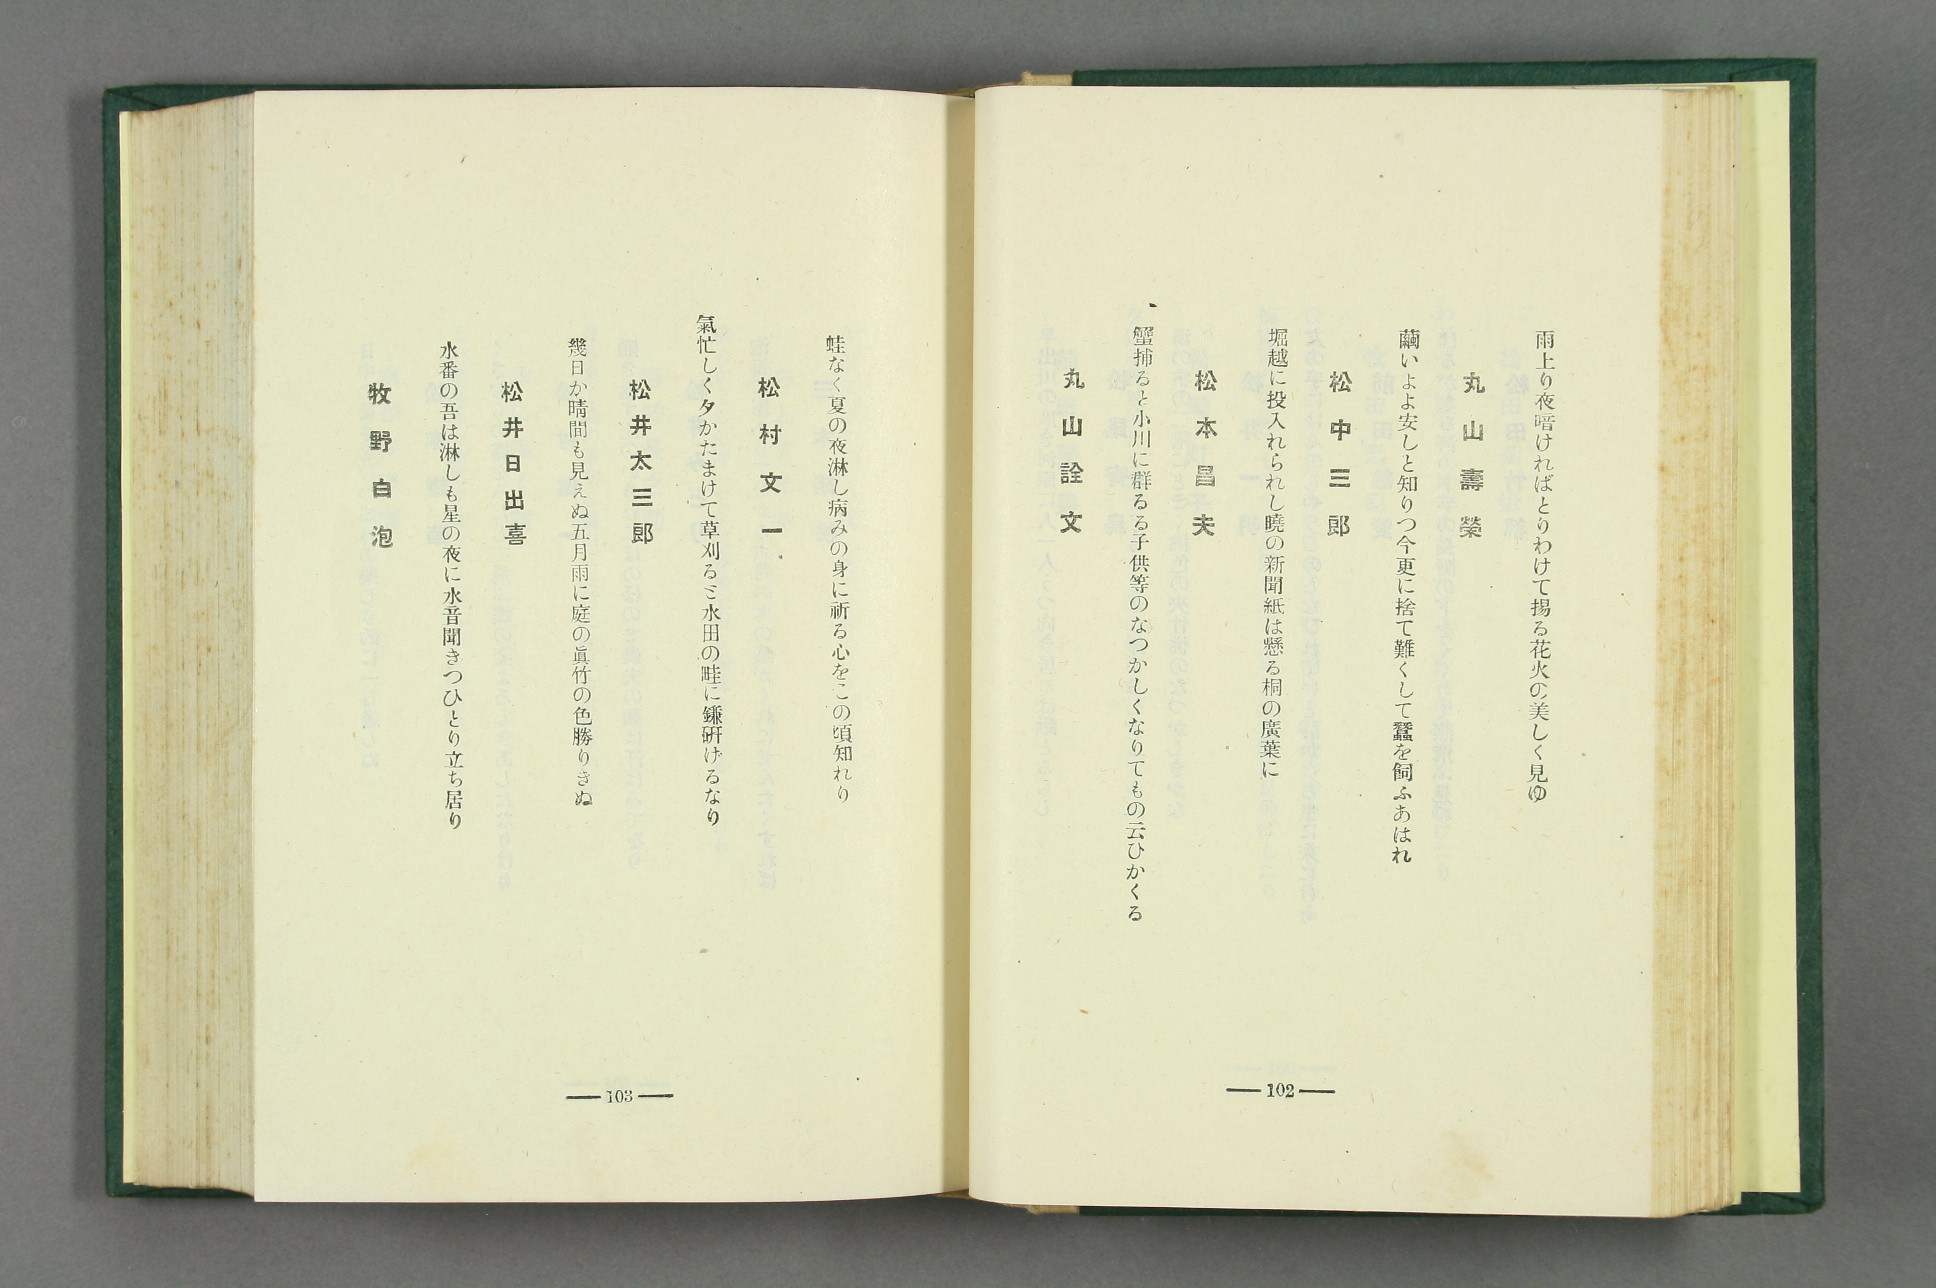 雨上り夜暗ければとりわけて揚る花火の美しく見ゆ
丸山壽榮
繭いよよ安しと知りつ今更に捨て難くして蠶を飼ふあはれ
松中三郎
堀越に投入れられし曉の新聞紙は懸る桐の廣葉に
松本昌夫
蟹捕ると小川に群るる子供等のなつかしくなりてもの云ひかくる
丸山詮文
― 102 ―
蛙なく夏の夜淋し病みの身に祈る心をこの頃知れり
松村文一
氣忙しく夕かたまけて草刈るミ水田の畦に鎌研げるなり
松井太三郎
幾日か晴間も見えぬ五月雨に庭の眞竹の色勝りきぬ
松井日出喜
水番の吾は淋しも星の夜に水音聞きつひとり立ち居り
牧野白泡
― 103 ―